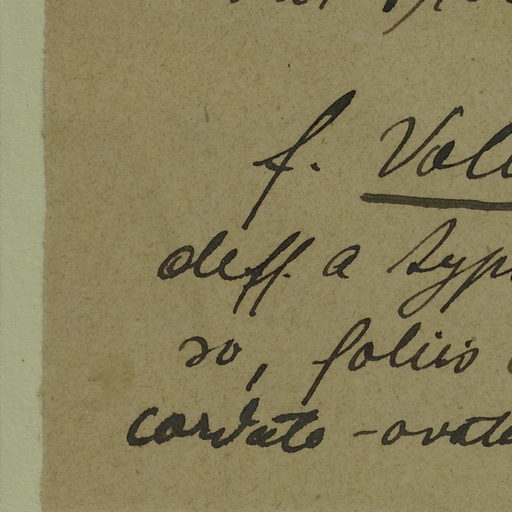 f. Vol
deff. a typ
so, foliis
cordato-ovat